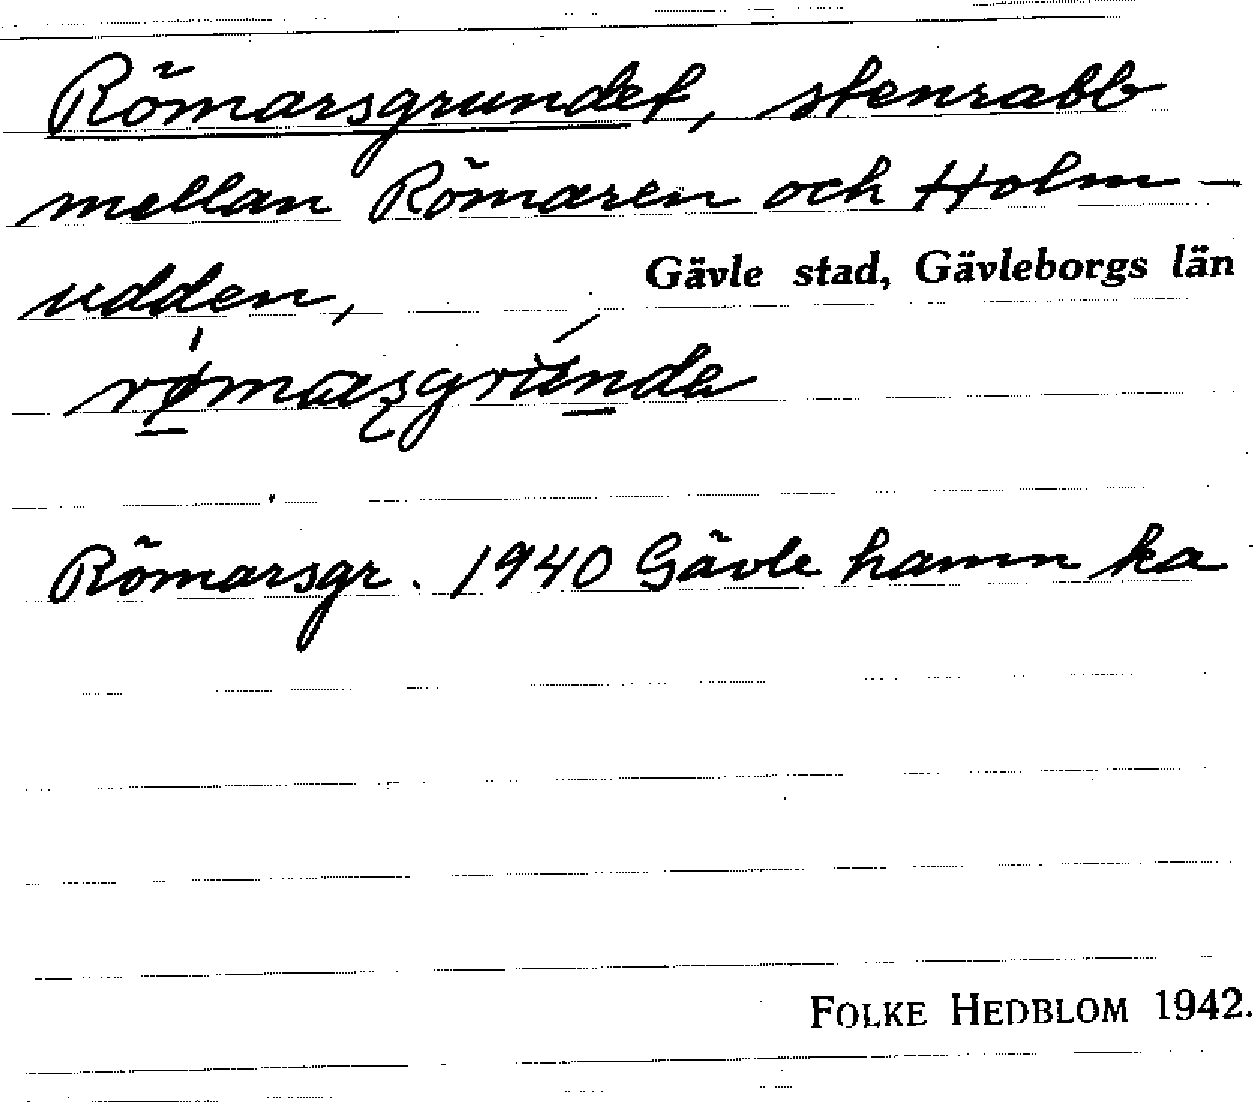 Römarsgrundet, stenrabb
mellan Römaren och Holm-
udden,
Gävle stad, Gävleborgs län
Römarsgr. 1940 Gävle hamn ka
FOLKE HEDBLOM 1942.